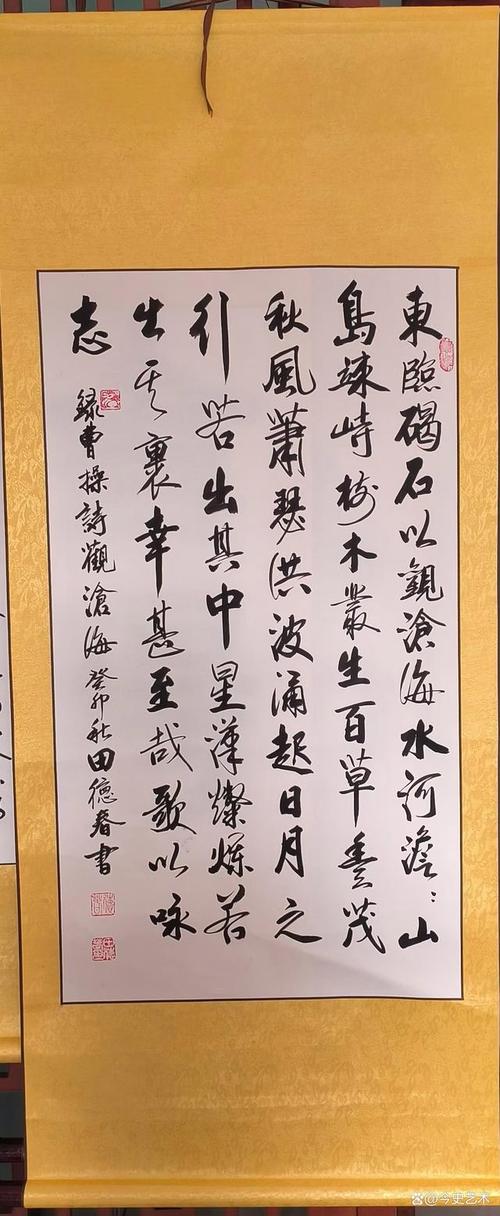 東臨碣石以觀滄海水河澹〻山
島竦峙樹木叢生百草豐茂
秋風蕭瑟洪波涌起日月之
行若出其中星漢燦爛若
出其裏幸甚至哉歌以咏
志
録曹操詩觀滄海癸卯秋田德春書
@今史艺术